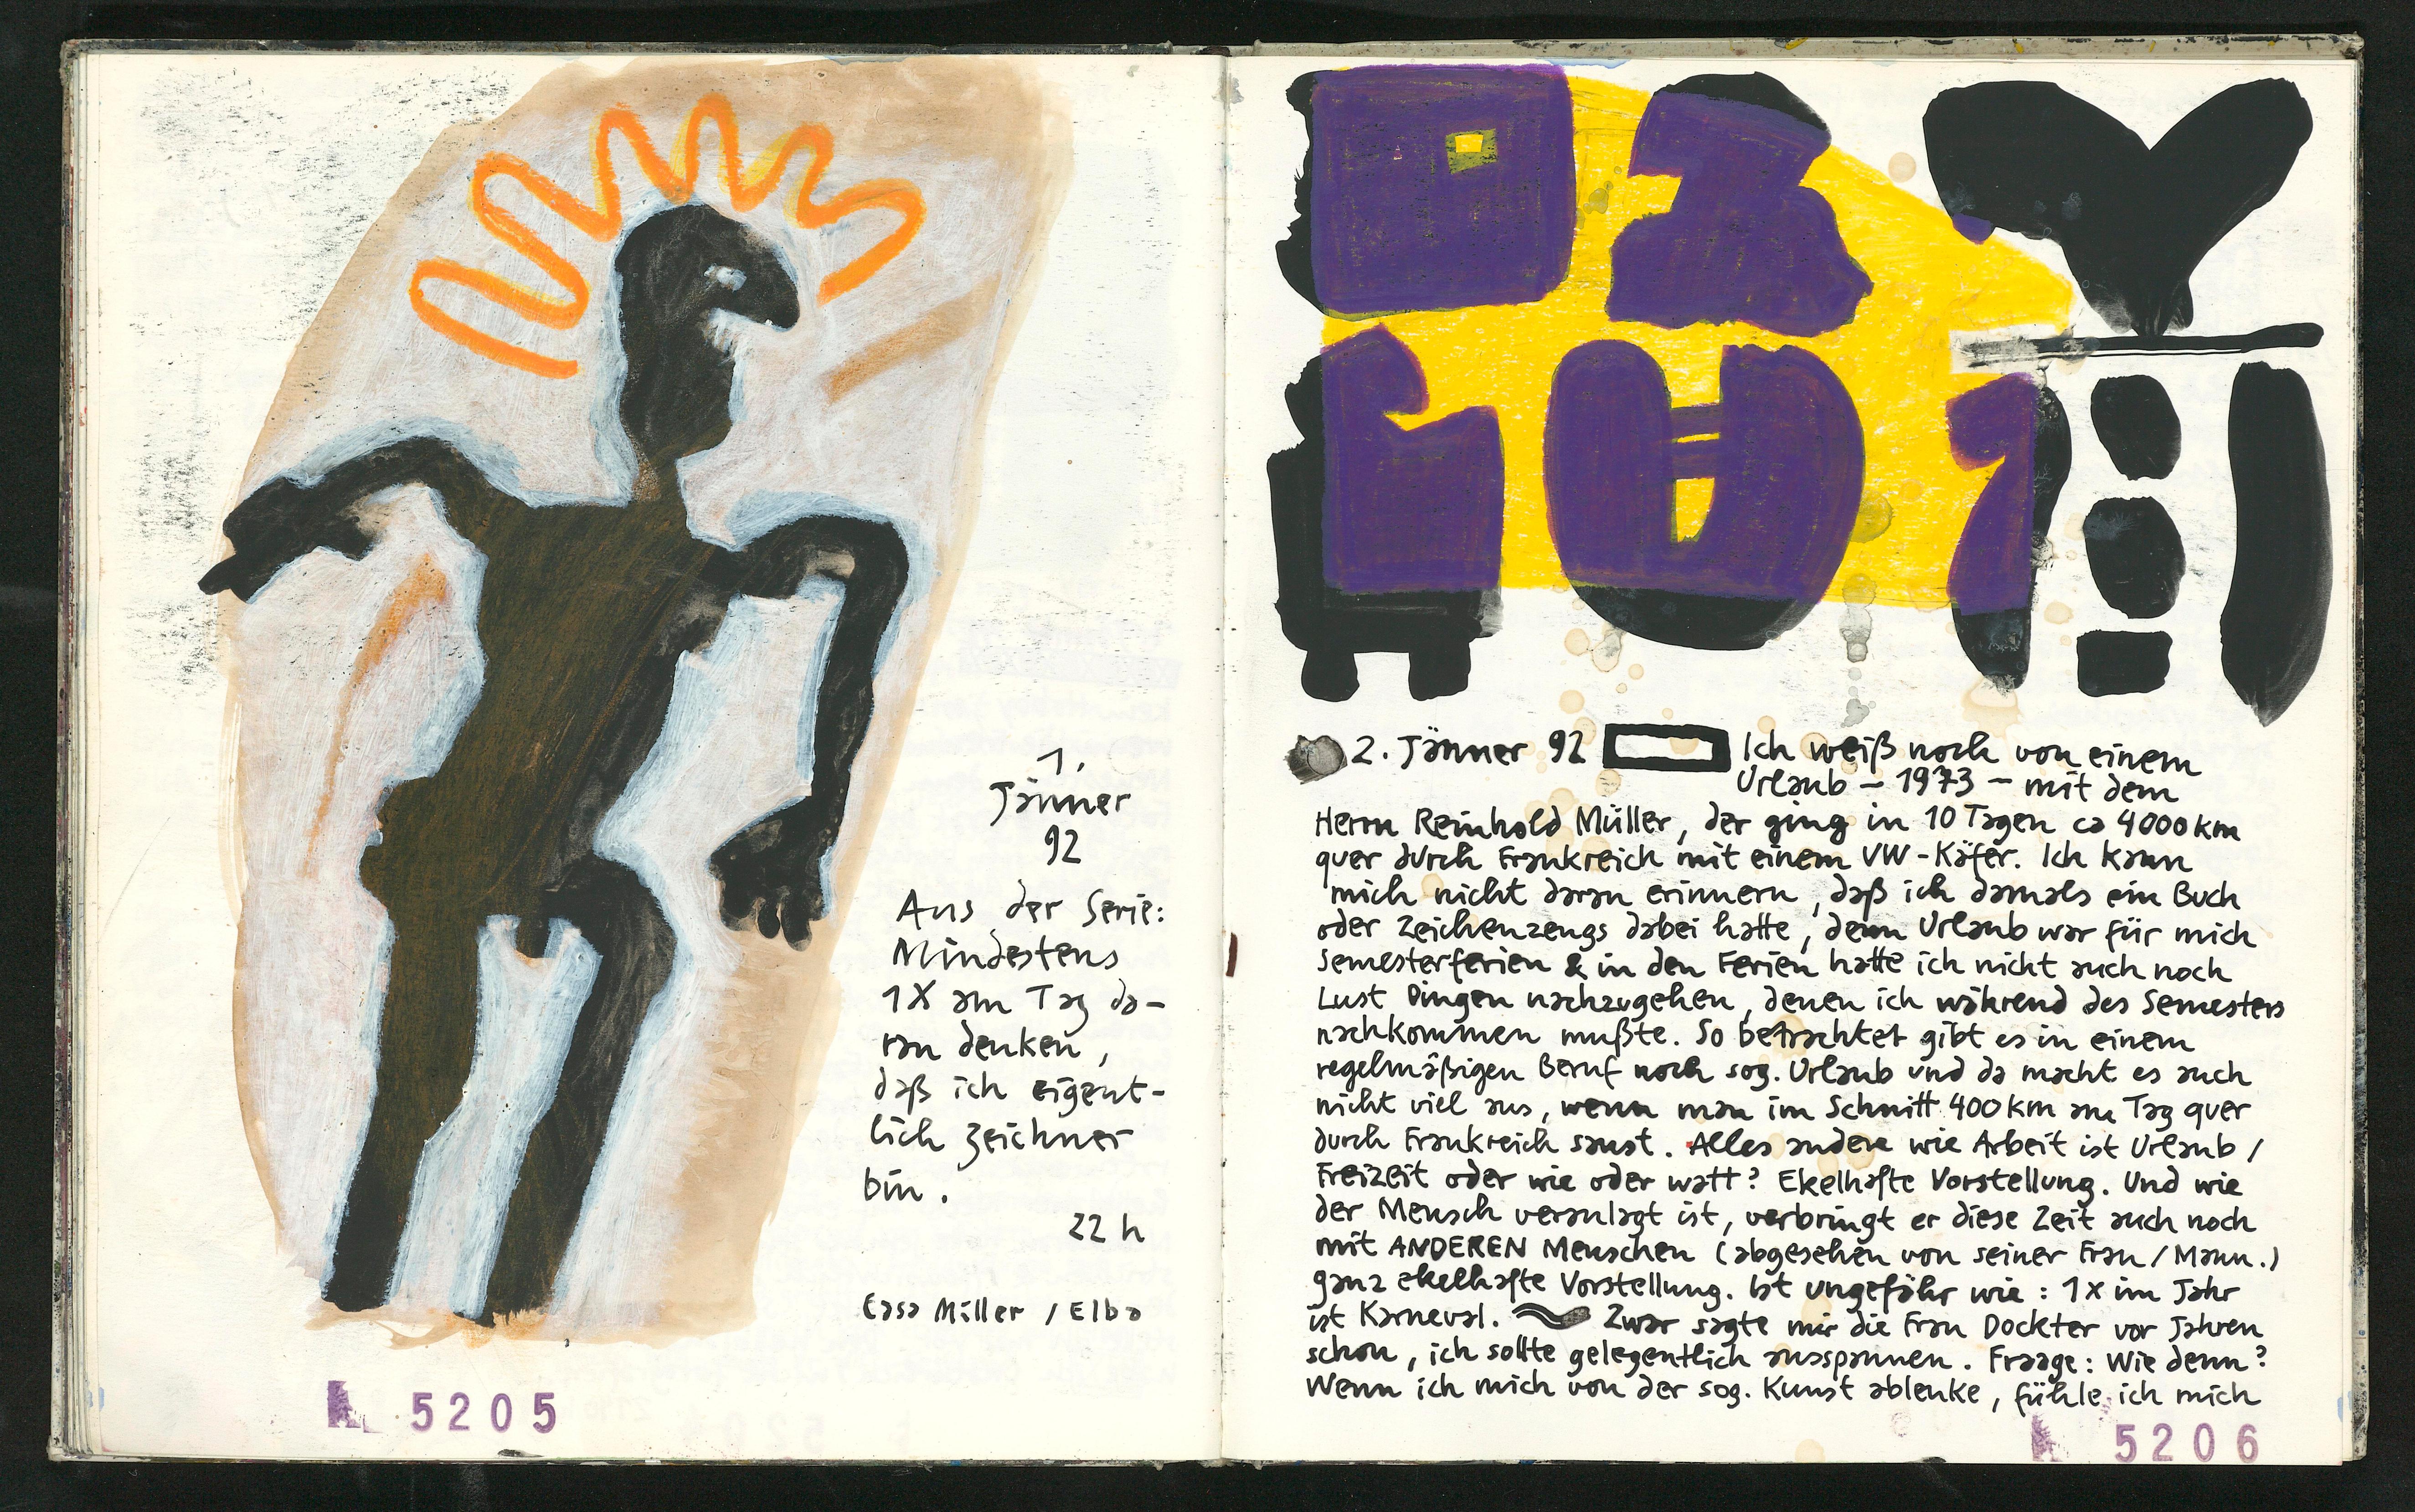 1.
Jänner
92
Aus der Serie:
Mindestens
1X am Tag da-
ran denken,
daß ich eigent-
lich Zeichner
bin.
22 h
Casa Miller / Elba
5205
2. Jänner 92 Ich weiß noch von einem
Urlaub - 1973 - mit dem
Herrn Reinhold Müller, der ging in 10 Tagen ca 4000 km
quer durch Frankreich mit einem VW-Käfer. Ich kann
mich nicht daran erinnern, daß ich damals ein Buch
oder Zeichenzeugs dabei hatte, denn Urlaub war für mich
Semesterferien & in den Ferien hatte ich nicht auch noch
Lust Dingen nachzugehen, denen ich während des Semesters
nachkommen mußte. So betrachtet gibt es in einem
regelmäßigen Beruf noch sog. Urlaub und da macht es auch
nicht viel aus, wenn man im Schnitt 400 km am Tag quer
durch Frankreich saust. Alles andere wie Arbeit ist Urlaub /
Freizeit oder wie oder watt? Ekelhafte Vorstellung. Und wie
der Mensch veranlagt ist, verbringt er diese Zeit auch noch
mit ANDEREN Menschen (abgesehen von seiner Frau / Mann.)
ganz ekelhafte Vorstellung. Ist ungefähr wie: 1x im Jahr
ist Karneval. Zwar sagte mir die Frau Dockter vor Jahren
schon, ich sollte gelegentlich ausspannen. Fraage: Wie denn?
Wenn ich mich von der sog. Kunst ablenke, fühle ich mich
5206